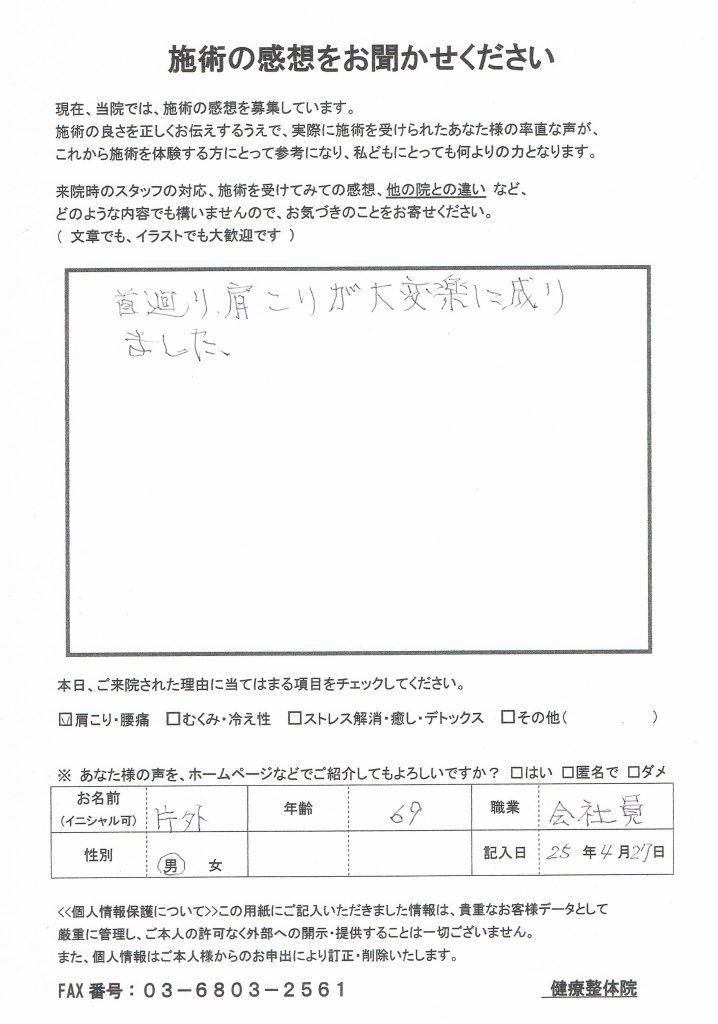 施術の感想をお聞かせください
現在、当院では、施術の感想を募集しています。
施術の良さを正しくお伝えするうえで、実際に施術を受けられたあなた様の率直な声が、
これから施術を体験する方にとって参考になり、私どもにとっても何よりの力となります。
来院時のスタッフの対応、施術を受けてみての感想、他の院との違い など、
どのような内容でも構いませんので、お気づきのことをお寄せください。
( 文章でも、イラストでも大歓迎です )
首廻り、肩こりが大変楽に成り
ました、
本日、ご来院された理由に当てはまる項目をチェックしてください。
☑肩こり・腰痛 □むくみ・冷え性 □ストレス解消・癒し・デトックス □その他( )
※ あなた様の声を、ホームページなどでご紹介してもよろしいですか? □はい □匿名で □ダメ
お名前 (イニシャル可) 片外 年齢 69 職業 会社員
性別 男 女 記入日 25 年 4 月 27 日
<<個人情報保護について>>この用紙にご記入いただきました情報は、貴重なお客様データとして
厳重に管理し、ご本人の許可なく外部への開示・提供することは一切ございません。
また、個人情報はご本人様からのお申出により訂正・削除いたします。
FAX 番号：03−6803−2561 健療整体院